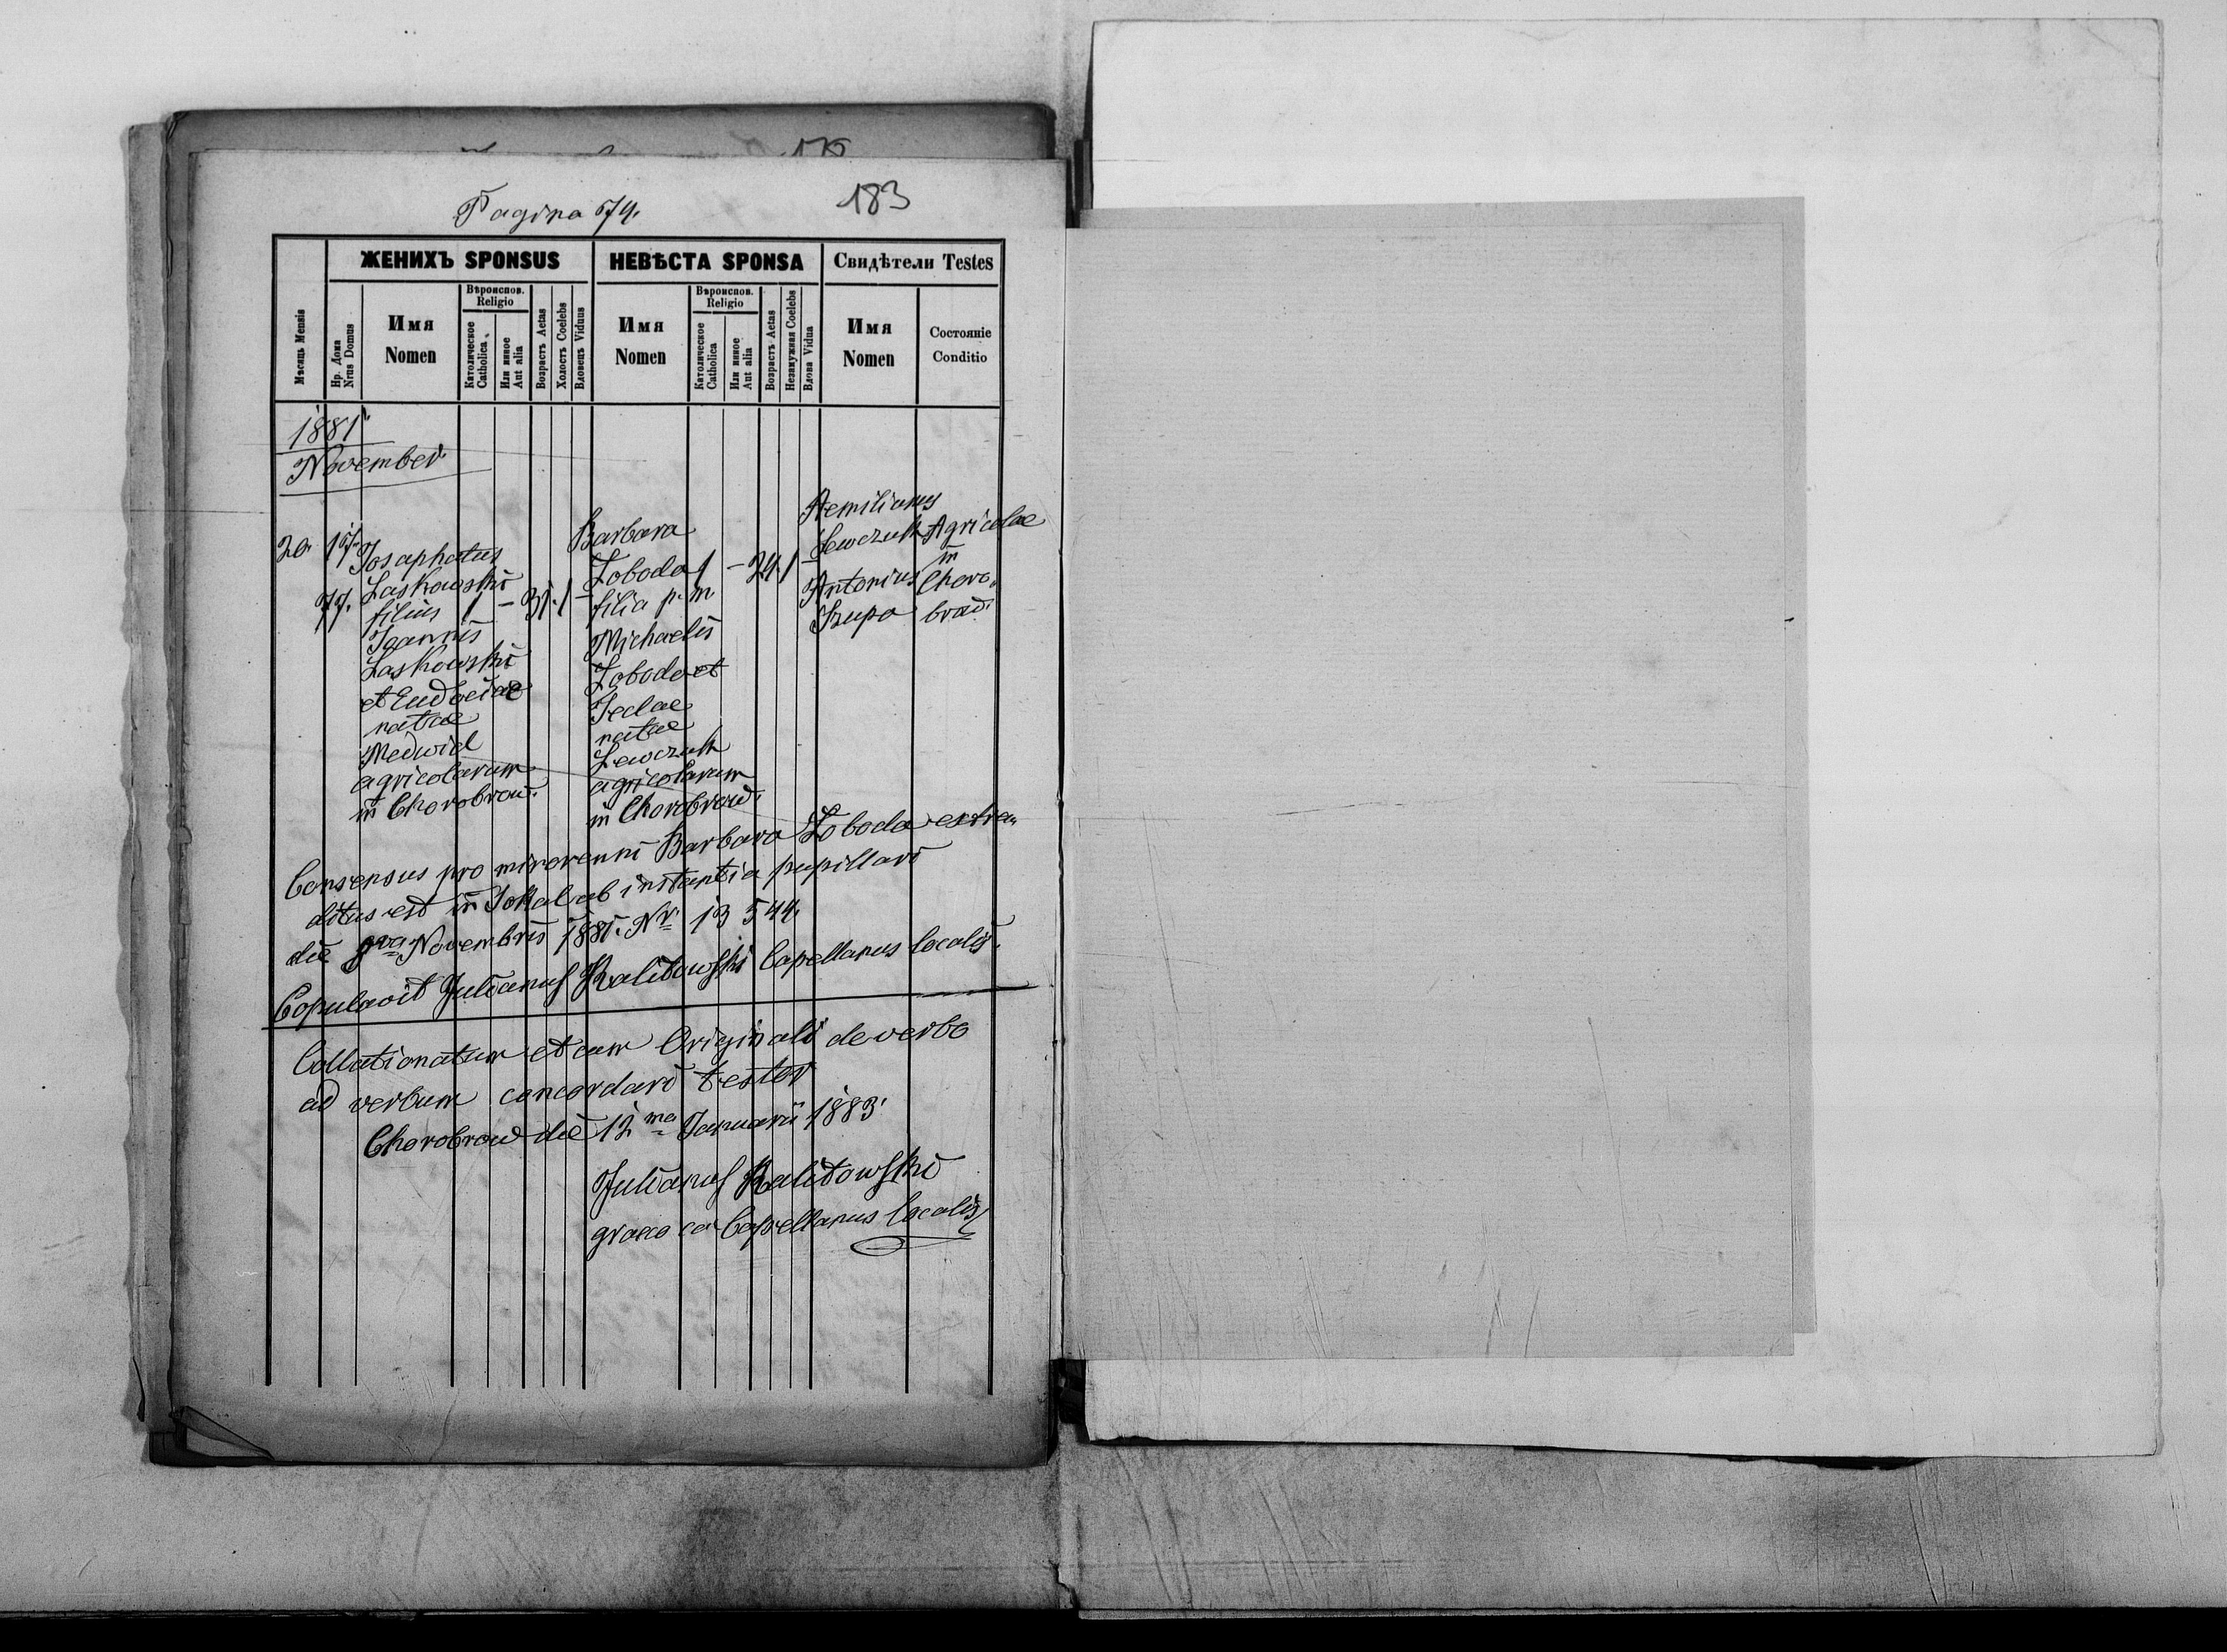 178
Pagina 74.
183
ЖЕНИХЪ SPONSUS
НЕВѢСТА SPONSA
Свидѣтели Testes
Мѣсяць Mensis
Нр. Дома
Nrus Domus
Имя
Nomen
Вѣроиспов.
Religio
Католическое
Catholica
Или инное
Aut alia
Возрастъ Aetas
Холостъ Coelebs
Вдовецъ Viduus
Имя
Nomen
Вѣроиспов.
Religio
Католическое
Catholica
Или инное
Aut alia
Возрастъ Aetas
Незамужная Coelebs
Вдова Vidua
Имя
Nomen
Состояніе
Conditio
1881
November
20.
77.
Josaphatus
Laskowski
filius
Joannis
Laskowski
et Eudociae
natae
Medwid
agricolarum
in Chorobrow.
1 – 31. 1 –
Barbara
Łoboda
filia p. m
Michaelis
Łoboda et
Teclae
natae
Lewczuk
agricolarum
in Chorobrow.
1 – 24. 1 –
Aemilianus
Lewczuk
Antonius
Szupa
Agricolae
in
Choro„
brow.
Consensus pro minorenni Barbara Łoboda extra„
ditus est in Sokal ab instantia pupillari
die 9va Novembris 1881. Nr 13544.
Copulavit Julianus Kalitowski Capellanus localis.
Collationatum et cum Originali de verbo
ad verbum concordari testor
Chorobrow die 12ma Januarii 1883.
Julianus Kalitowski
graeco cat Capellanus localis